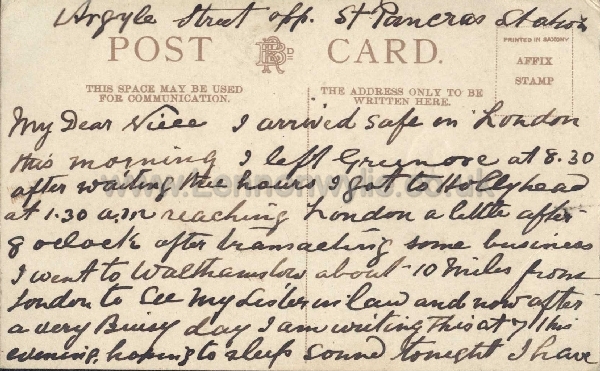 Argyle Street opp. St Pancras Station
POST CARD.
PRINTED IN SAXONY
AFFIX
STAMP
THIS SPACE MAY BE USED
FOR COMMUNICATION.
THE ADDRESS ONLY TO BE
WRITTEN HERE.
My Dear Niece I arrived safe in London
this morning I left Greenore at 8.30
after waiting three hours I got to Hollyhead
at 1.30 a.m reaching London a little after
8 oclock after transacting some business
I went to Walthamstow about 10 Miles from
London to See My Sister in law and now after
a very Buisy day I am writing this at 7 this
evening. hoping to sleep sound tonight I have
www.Lennonwylie.co.uk